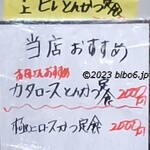 ヒレとんかつ定食
当店おすすめ
©2023 bibo6.jp
カタロースとんかつ定食 2000円
極上ロースかつ定食 2000円